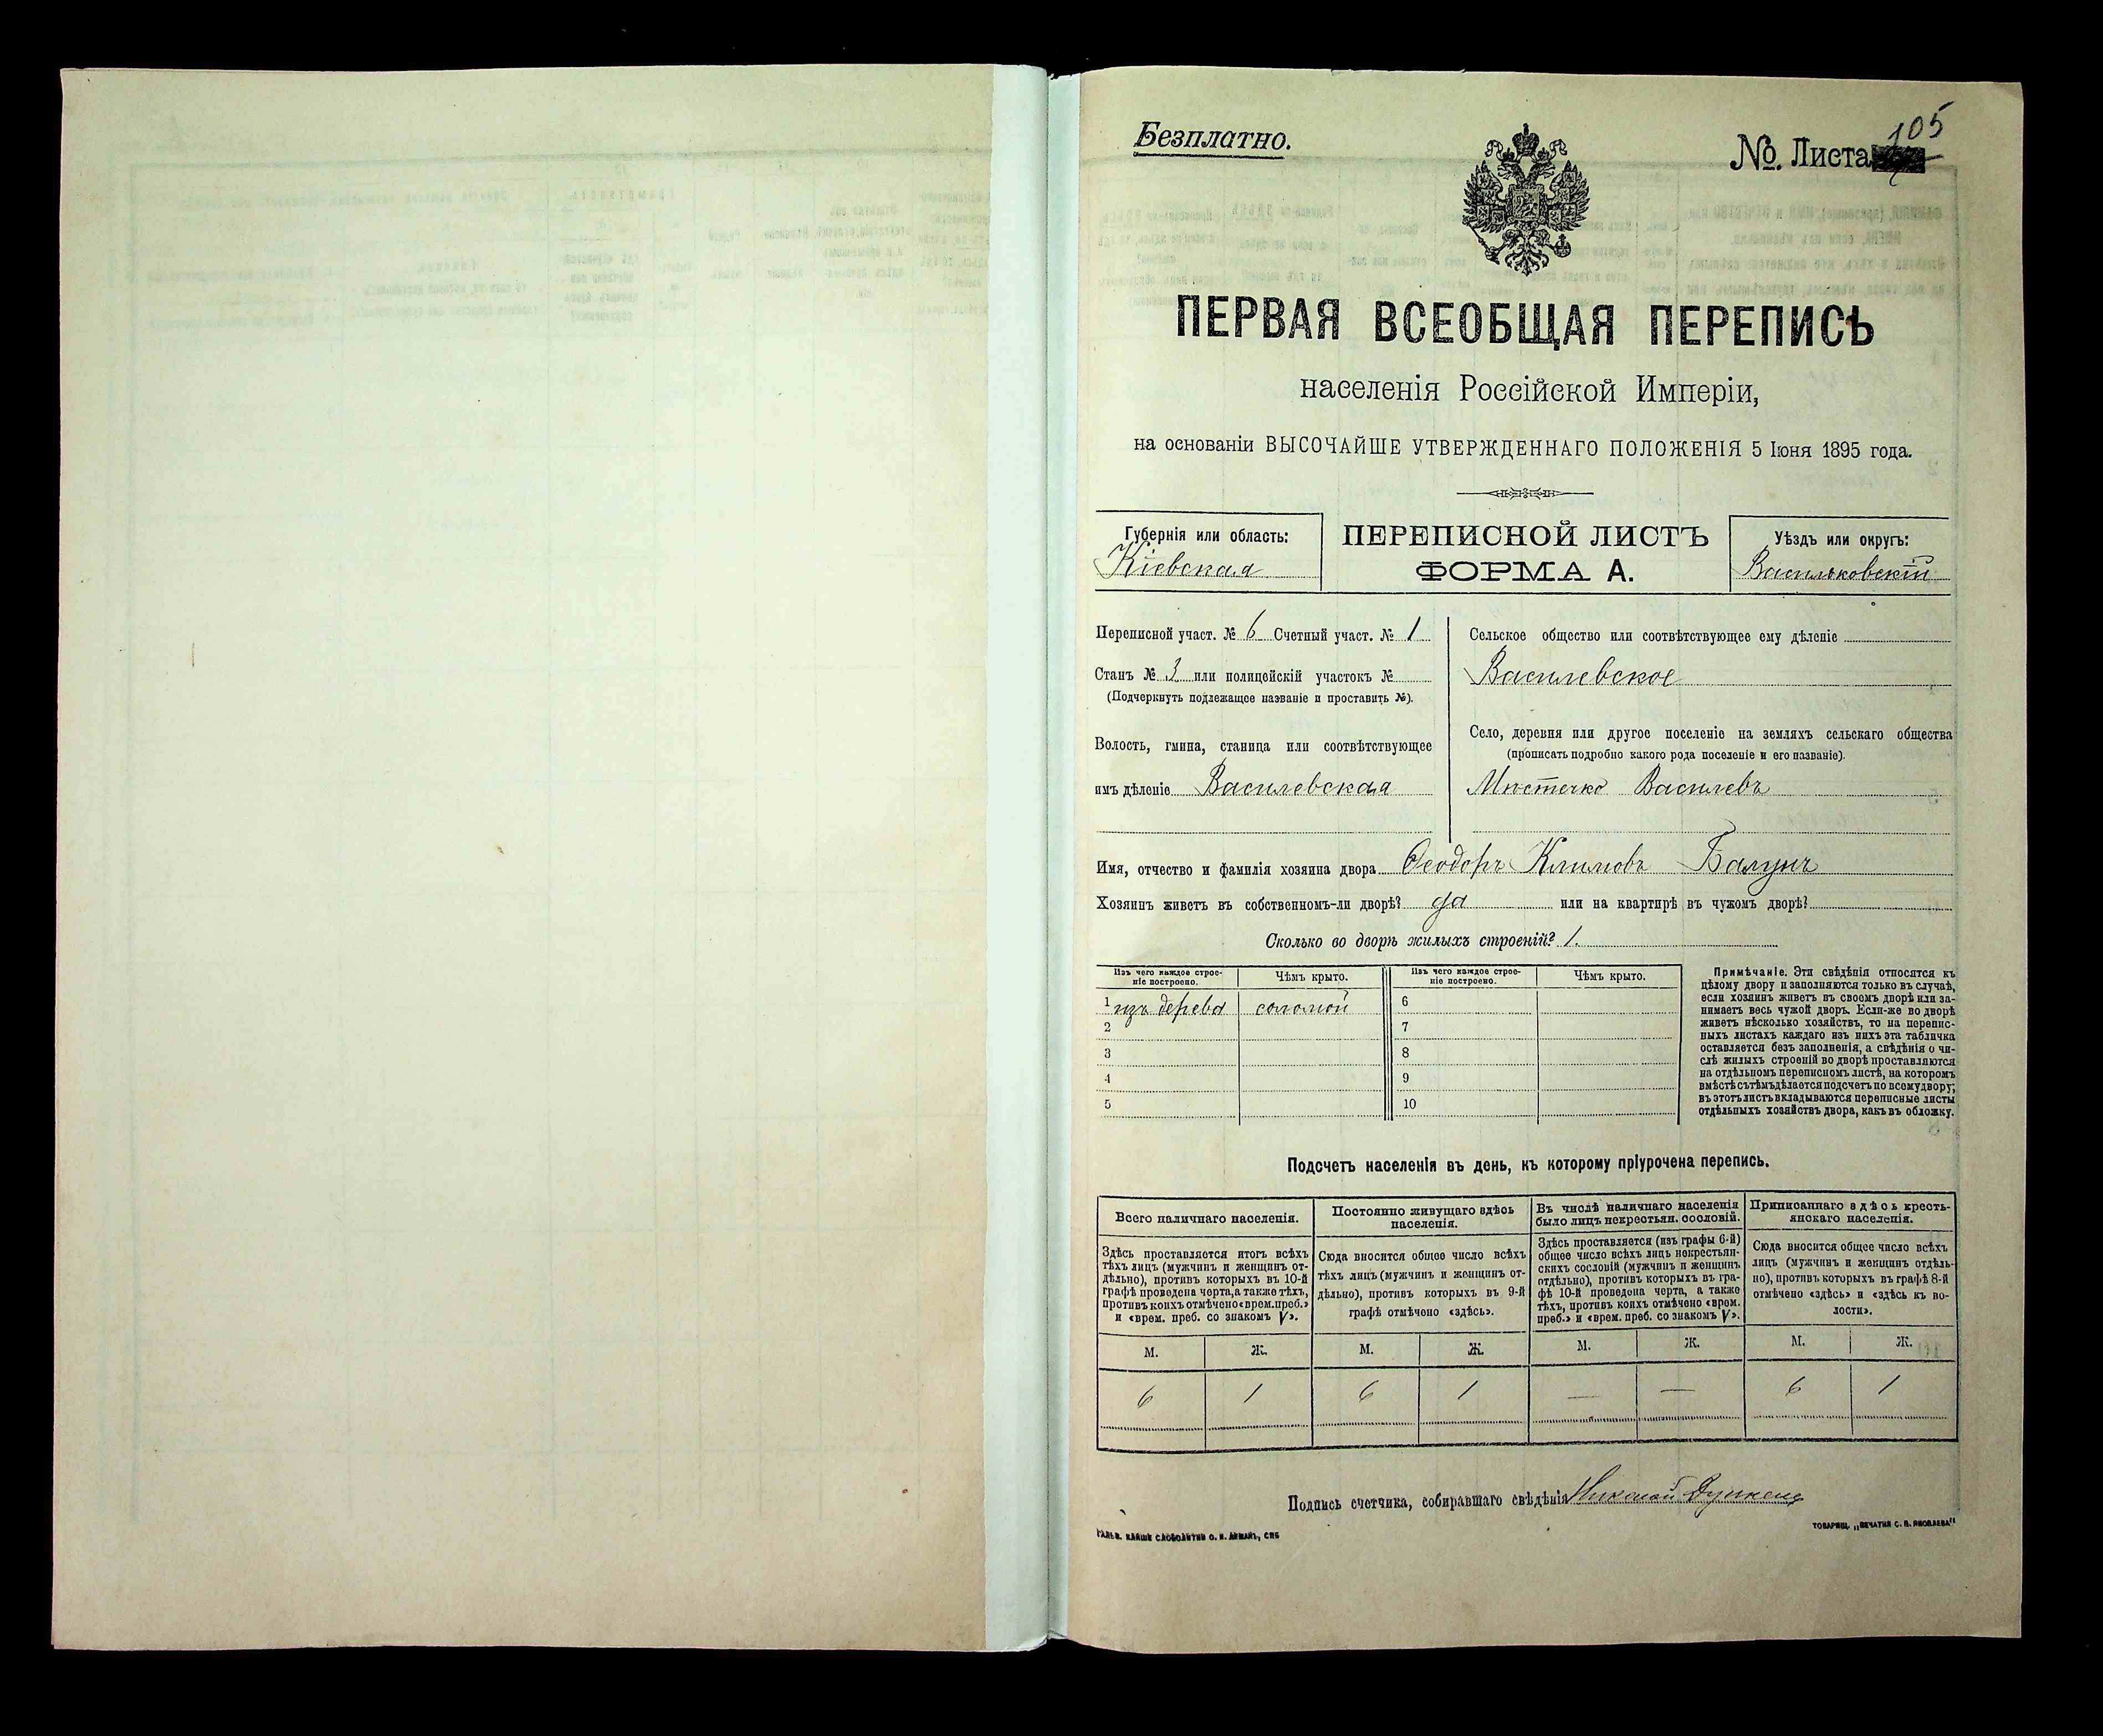 Безплатно.
№. Листа 105
ПЕРВАЯ ВСЕОБЩАЯ ПЕРЕПИСЬ
населенія Россійской Имперіи,
на основаніи ВЫСОЧАЙШЕ УТВЕРЖДЕННАГО ПОЛОЖЕНІЯ 5 Іюня 1895 года.
Губернія или область:
Кіевская
ПЕРЕПИСНОЙ ЛИСТЪ
ФОРМА А.
Уѣздъ или округъ:
Васильковскій
Переписной участ. № 6 Счетный участ. № 1
Станъ № 3 или полицейскій участокъ №
(Подчеркнуть подлежащее названіе и проставить №).
Волость, гмина, станица или соотвѣтствующее
имъ дѣленіе Василевская
Сельское общество или соотвѣтствующее ему дѣленіе
Василевское
Село, деревня или другое поселеніе на земляхъ сельскаго общества
(прописать подробно какого рода поселеніе и его названіе).
Мѣстечко Василевъ
Имя, отчество и фамилія хозяина двора Ѳеодоръ Климовъ
Хозяинъ живетъ въ собственномъ-ли дворѣ? да или на квартирѣ въ чужомъ дворѣ?
Сколько во дворѣ жилыхъ строеній? 1.
Изъ чего каждое строе-
ніе построено.
Чѣмъ крыто.
Изъ чего каждое строе-
ніе построено.
Чѣмъ крыто.
1 изъ дерева соломой 6
2 7
3 8
4 9
5 10
Примѣчаніе. Эти свѣдѣнія относятся къ
цѣлому двору и заполняются только въ случаѣ,
если хозяинъ живетъ въ своемъ дворѣ или за-
нимаетъ весь чужой дворъ. Если-же во дворѣ
живетъ нѣсколько хозяйствъ, то на перепис-
ныхъ листахъ каждаго изъ нихъ эта табличка
оставляется безъ заполненія, а свѣдѣнія о чи-
слѣ жилыхъ строеній во дворѣ проставляются
на отдѣльномъ переписномъ листѣ, на которомъ
вмѣстѣ съ тѣмъ дѣлается подсчетъ по всему двору;
въ этотъ листъ вкладываются переписные листы
отдѣльныхъ хозяйствъ двора, какъ въ обложку.
Подсчетъ населенія въ день, къ которому пріурочена перепись.
Всего наличнаго населенія.
Здѣсь проставляется итогъ всѣхъ
тѣхъ лицъ (мужчинъ и женщинъ от-
дѣльно), противъ которыхъ въ 10-й
графѣ проведена черта, а также тѣхъ,
противъ коихъ отмѣчено «врем. преб.»
и «врем. преб. со знакомъ V».
Постоянно живущаго здѣсь
населенія.
Сюда вносится общее число всѣхъ
тѣхъ лицъ (мужчинъ и женщинъ от-
дѣльно), противъ которыхъ въ 9-й
графѣ отмѣчено «здѣсь».
Въ числѣ наличнаго населенія
было лицъ некрестьян. сословій.
Здѣсь проставляется (изъ графы 6-й)
общее число всѣхъ лицъ некрестьян-
скихъ сословій (мужчинъ и женщинъ
отдѣльно), противъ которыхъ въ гра-
фѣ 10-й проведена черта, а также
тѣхъ, противъ коихъ отмѣчено «врем.
преб.» и «врем. преб. со знакомъ V».
Приписаннаго здѣсь кресть-
янскаго населенія.
Сюда вносится общее число всѣхъ
лицъ (мужчинъ и женщинъ отдѣль-
но), противъ которыхъ въ графѣ 8-й
отмѣчено «здѣсь» и «здѣсь къ во-
лости».
М. Ж. М. Ж. М. Ж. М. Ж.
6 1 6 1 — — 6 1
Подпись счетчика, собиравшаго свѣдѣнія Николай
ТОВАРИЩ. „ПЕЧАТНЯ С. П. ЯКОВЛЕВА"